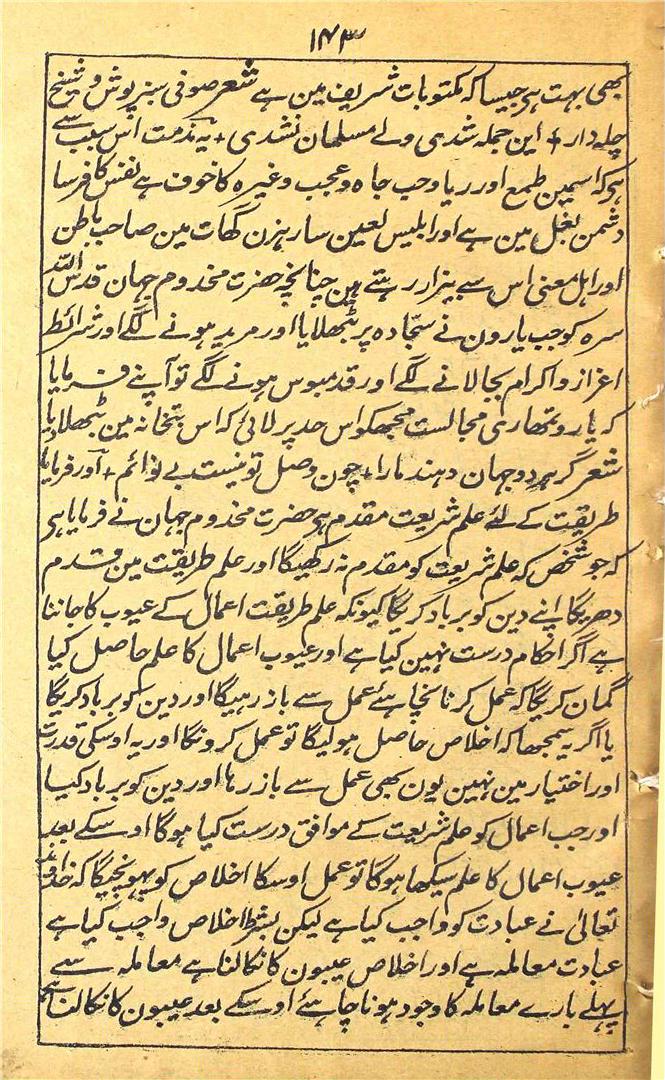 ۱۴۳
بھی بہت ہی جیسا کہ مکتوبات شریف مین ہے شعر صوفی سبز پوش و شیخ
چلہ دار + این جملہ شدی ولے مسلمان نشدی + یہ مذمت اس سبب سے
ہی کہ اسمین طمع اور ریا و حب جاہ و عجب وغیرہ کا خوف ہے نفس کا فرسا
دشمن بغل مین ہے اور ابلیس لعین سا رہزن گھات مین صاحب باطن
اور اہل معنی اس سے بیزار رہتے ہین چنانچہ حضرت مخدوم جہان قدس اللہ
سرہ کو جب یارون نے سجادہ پر بٹھلایا اور مرید ہونے لگے اور شرائط
اعزاز و اکرام بجا لانے لگے اور قدمبوس ہونے لگے تو آپنے فرمایا
کہ یارو تمھاری مجالست مجھکو اس حد پر لائی کہ اس بتخانہ مین بٹھلا دیا
شعر گر ہر دو جہان دہند مارا + چون وصل تو نیست بے نوائم + اور فرمایا
طریقت کے لئے علم شریعت مقدم ہی حضرت مخدوم جہان نے فرمایا ہی
کہ جو شخص کہ علم شریعت کو مقدم نہ رکھیگا اور علم طریقت مین قدم
دھریگا اپنے دین کو برباد کریگا کیونکہ علم طریقت اعمال کے عیوب کا جاننا
ہے اگر احکام درست نہین کیا ہے اور عیوب اعمال کا علم حاصل کیا
گمان کریگا کہ عمل کرنا نچاہئے عمل سے باز رہیگا اور دین کو برباد کریگا
یا اگر یہ سمجھا کہ اخلاص حاصل ہو لیگا تو عمل کرونگا اور یہ اوسکی قدرت
اور اختیار مین نہین یون بھی عمل سے باز رہا اور دین کو برباد کیا
اور جب اعمال کو علم شریعت کے موافق درست کیا ہوگا اوسکے بعد
عیوب اعمال کا علم سیکھا ہوگا تو عمل اوسکا اخلاص کو پہونچیگا کہ خداوند
تعالیٰ نے عبادت کو واجب کیا ہے لیکن بشرط اخلاص واجب کیا ہے
عبادت معاملہ ہے اور اخلاص عیبون کا نکالنا ہے معاملہ سے
پہلے بارے معاملہ کا وجود ہونا چاہئے اوسکے بعد عیبون کا نکالنا